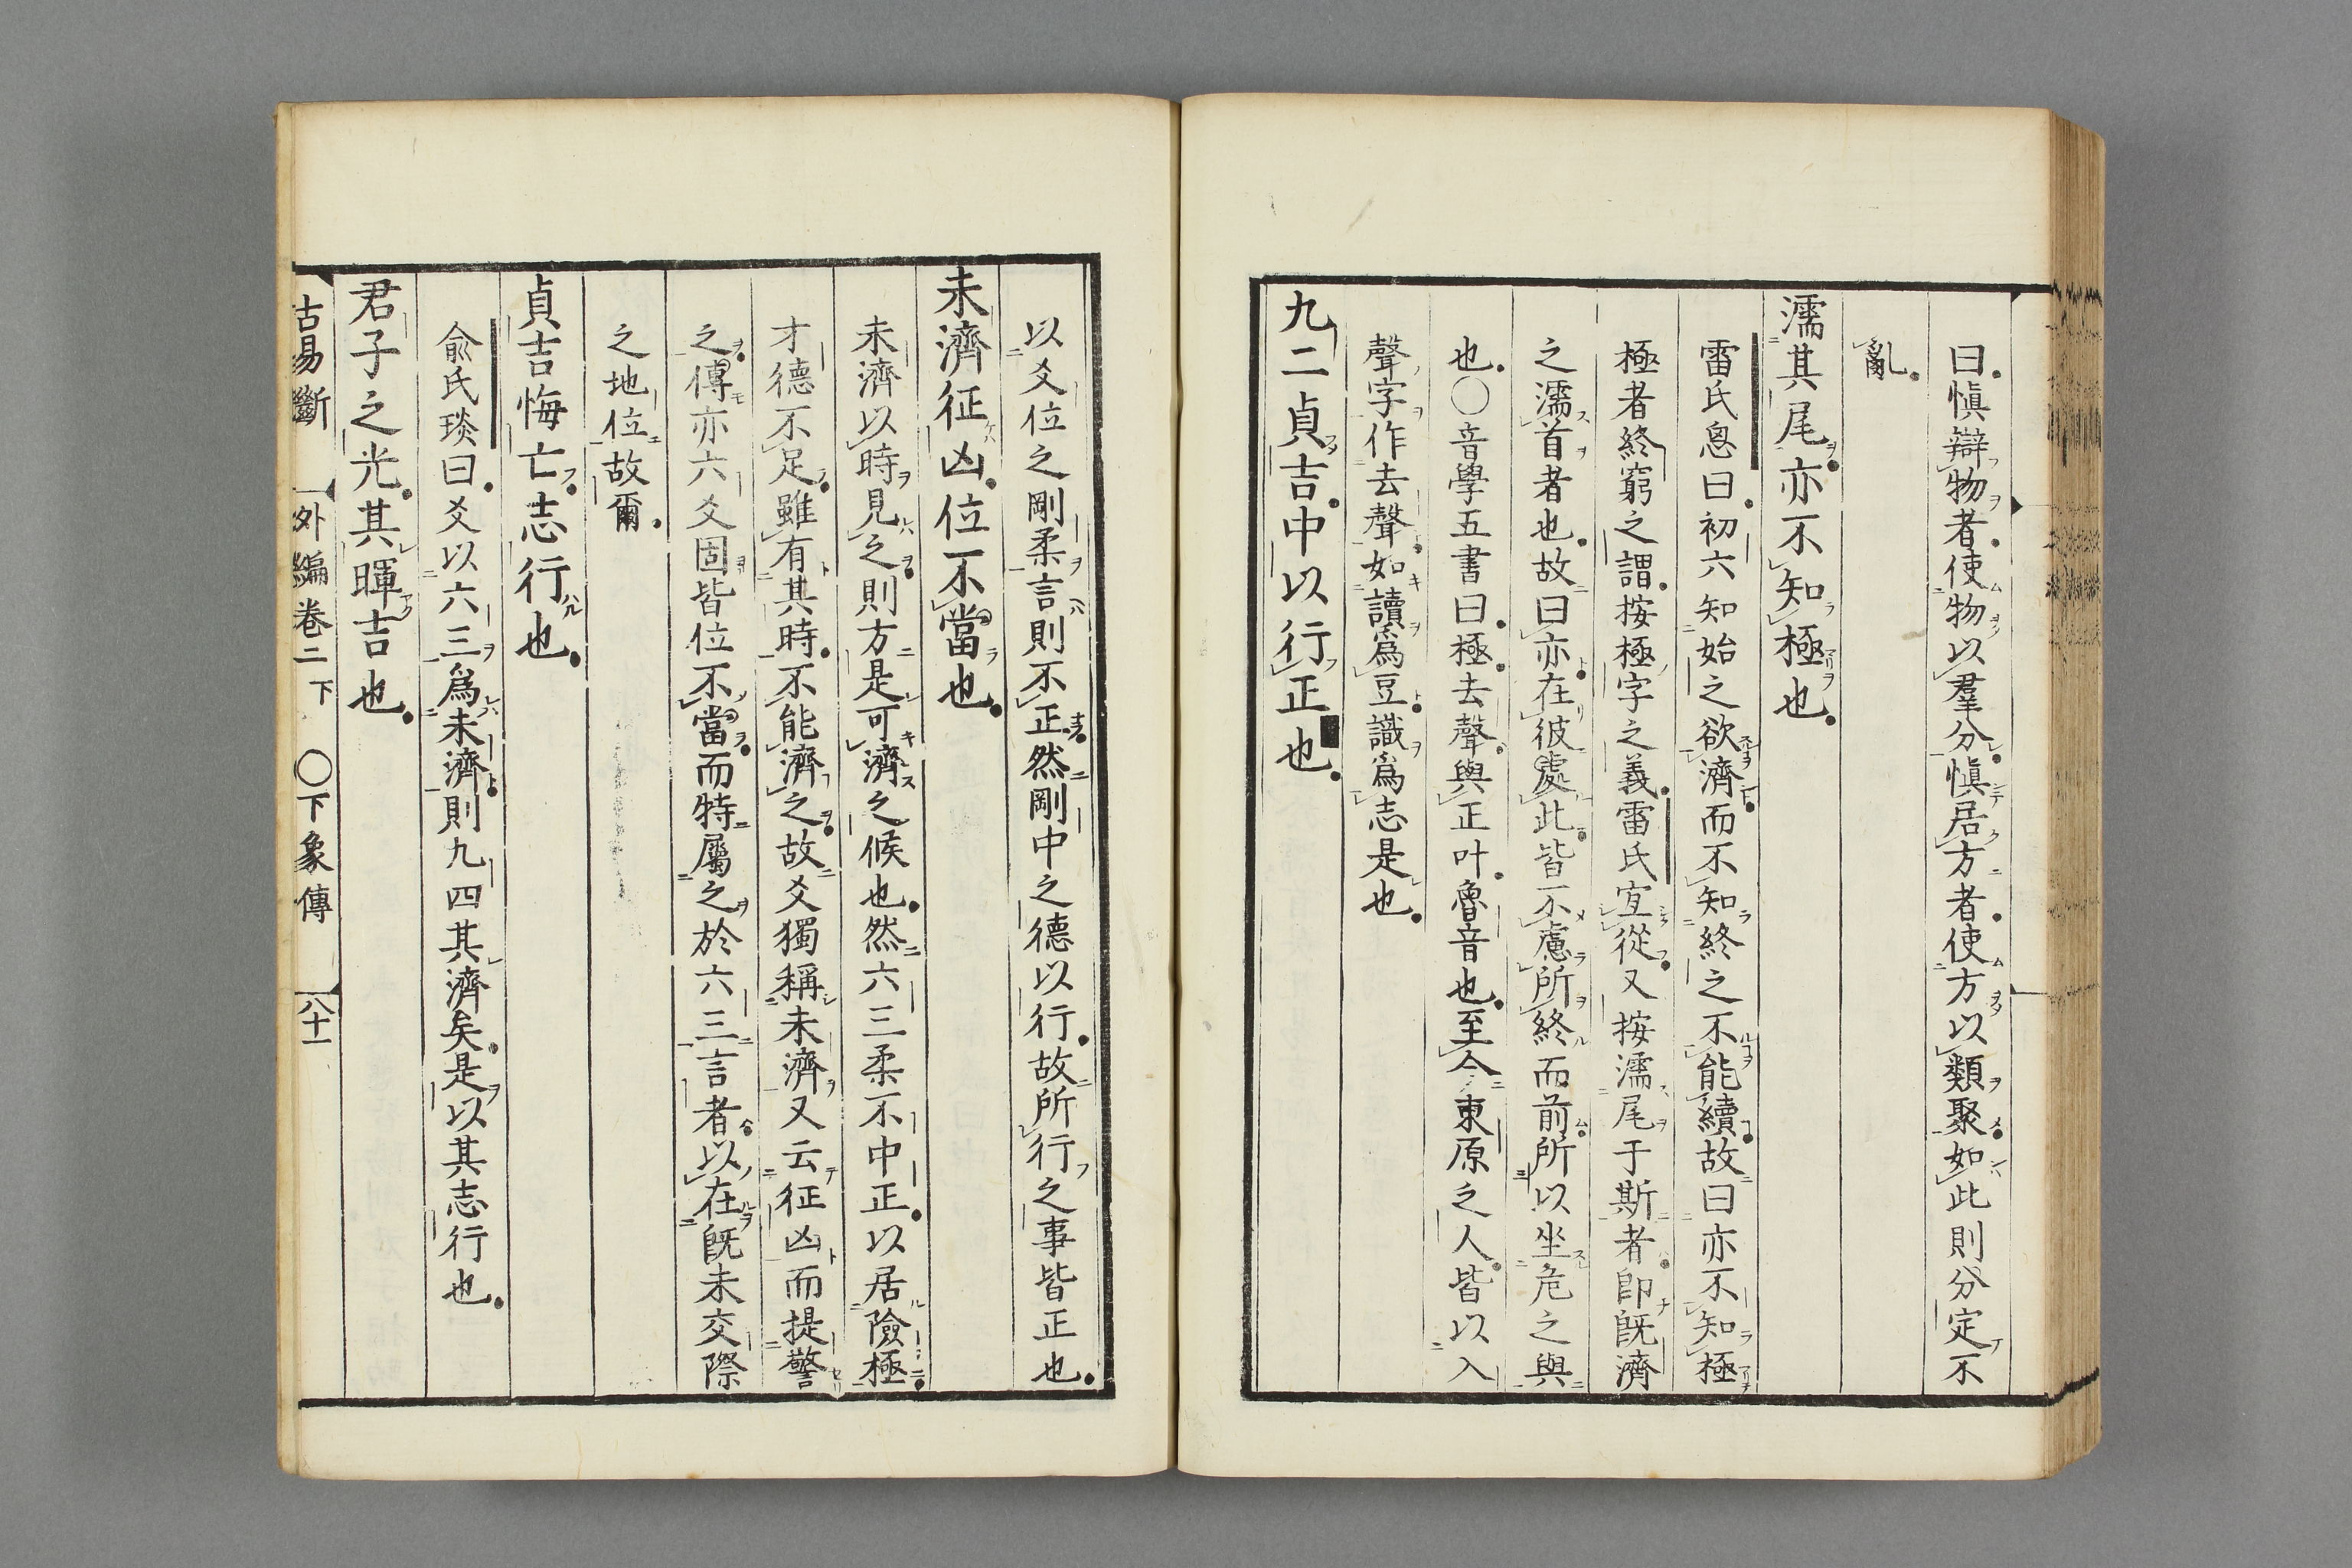 曰愼辯物者使物以羣分愼居方者使方以類聚如此則分定不
亂
濡其尾亦不知極也
雷氏思曰初六知始之欲濟而不知終之不能續故曰亦不知極
極者終窮之謂按極字之義雷氏宜從又按濡尾于斯者卽旣濟
之濡首者也故曰亦在彼處此皆不慮所終而前所以坐危之與
也○音學五書曰極去聲與正叶魯音也至今東原之人皆以入
聲字作去聲如讀爲豆識爲志是也
九二貞吉中以行正也
以爻位之剛柔言則不正然剛中之德以行故所行之事皆正也
未濟征凶位不當也
未濟以時見之則方是可濟之候也然六三柔不中正以居險極
才德不足雖有其時不能濟之故爻獨稱未濟又云征凶而提警
之傳亦六爻固皆位不當而特屬之於六三言者以在旣未交際
之地位故爾
貞吉悔亡志行也
俞氏琰曰爻以六三爲未濟則九四其濟矣是以其志行也
君子之光其暉吉也
古易斷 外編卷二下 ○下象傳 八十一